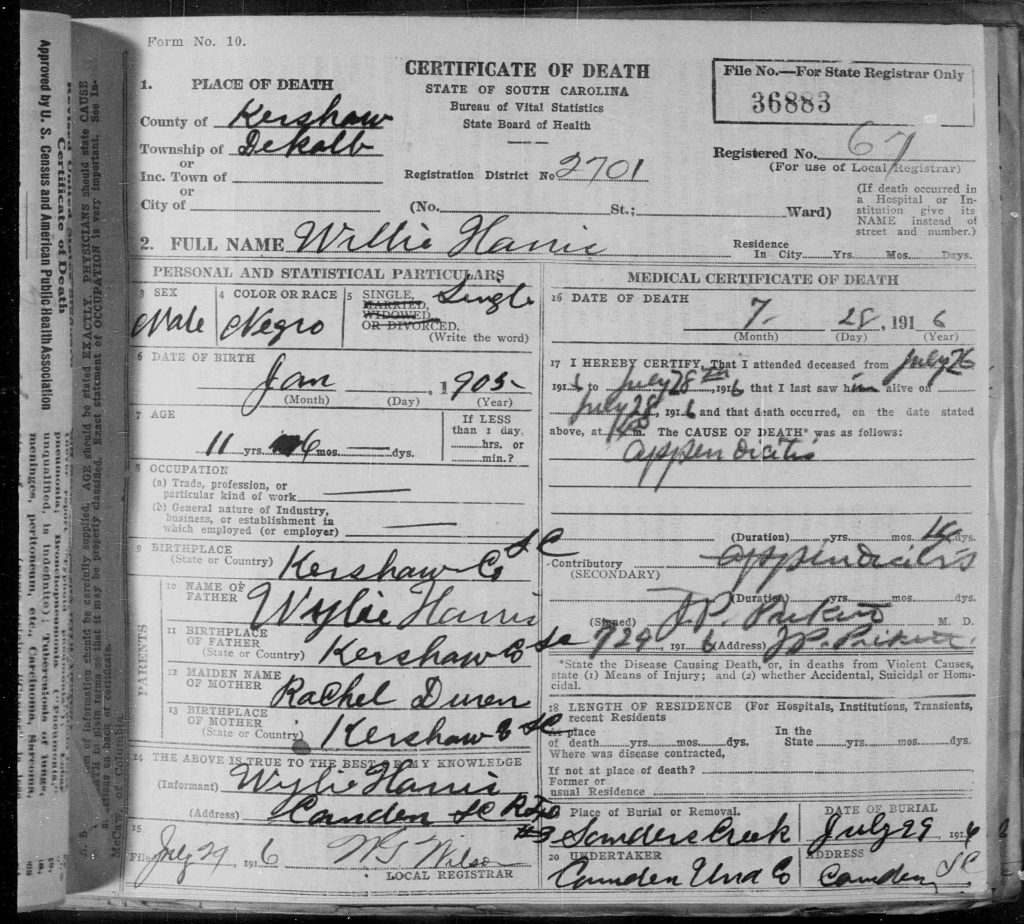 Form No. 10.
1. PLACE OF DEATH
County of Kershaw
Township of Dekalb
or
Inc. Town of
or
City of
CERTIFICATE OF DEATH
STATE OF SOUTH CAROLINA
Bureau of Vital Statistics
State Board of Health
Registration District No 2701
(No. St.; Ward)
File No.—For State Registrar Only
36883
Registered No. 67
(For use of Local Registrar)
(If death occurred in
a Hospital or In-
stitution give its
NAME instead of
street and number.)
2. FULL NAME Willie Harris
Residence
In City Yrs. Mos. Days.
PERSONAL AND STATISTICAL PARTICULARS
3 SEX
Male
4 COLOR OR RACE
Negro
5 SINGLE,
MARRIED,
WIDOWED
OR DIVORCED.
(Write the word)
Single
6 DATE OF BIRTH
Jan 1905
(Month) (Day) (Year)
7 AGE
11 yrs. 6 mos. dys.
If LESS
than 1 day,
hrs. or
min.?
8 OCCUPATION
(a) Trade, profession, or
particular kind of work
(b) General nature of Industry,
business, or establishment in
which employed (or employer)
9 BIRTHPLACE
(State or Country) Kershaw Co S C
PARENTS
10 NAME OF
FATHER Wylie Harris
11 BIRTHPLACE
OF FATHER
(State or Country) Kershaw Co SC
12 MAIDEN NAME
OF MOTHER Rachel Duren
13 BIRTHPLACE
OF MOTHER
(State or Country) Kershaw Co SC
14 THE ABOVE IS TRUE TO THE BEST OF MY KNOWLEDGE
(Informant) Wylie Harris
(Address) Camden SC
#3
15
Filed July 29 1916 WG Wilson
LOCAL REGISTRAR
MEDICAL CERTIFICATE OF DEATH
16 DATE OF DEATH
7 28, 1916
(Month) (Day) (Year)
17 I HEREBY CERTIFY, That I attended deceased from July 26
1916 to July 28th, 1916 that I last saw him alive on
July 28, 1916 and that death occurred, on the date stated
above, at m. The CAUSE OF DEATH* was as follows:
appendicitis
(Duration) yrs. mos. dys.
Contributory appendicitis
(SECONDARY)
(Duration) yrs. mos. dys.
(Signed) M. D.
729, 1916 (Address)
*State the Disease Causing Death, or, in deaths from Violent Causes,
state (1) Means of Injury; and (2) whether Accidental, Suicidal or Homi-
cidal.
18 LENGTH OF RESIDENCE (For Hospitals, Institutions, Transients,
recent Residents
At place In the
of death yrs. mos. dys. State yrs. mos. dys.
Where was disease contracted,
If not at place of death?
Former or
usual Residence
Place of Burial or Removal.
Sanders Creek
DATE OF BURIAL
July 29 1916
20 UNDERTAKER
Camden Und Co
ADDRESS
Camden S C
Certificate of Death
Approved by U. S. Census and American Public Health Association